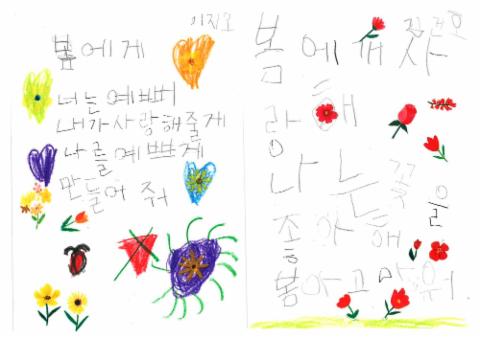 이지오
봄에게
너는 예뻐
내가 사랑해줄게
나를 예쁘게
만들어 줘
봄에게 사
랑해
나는 꽃을
조아해
봄아 고마워.